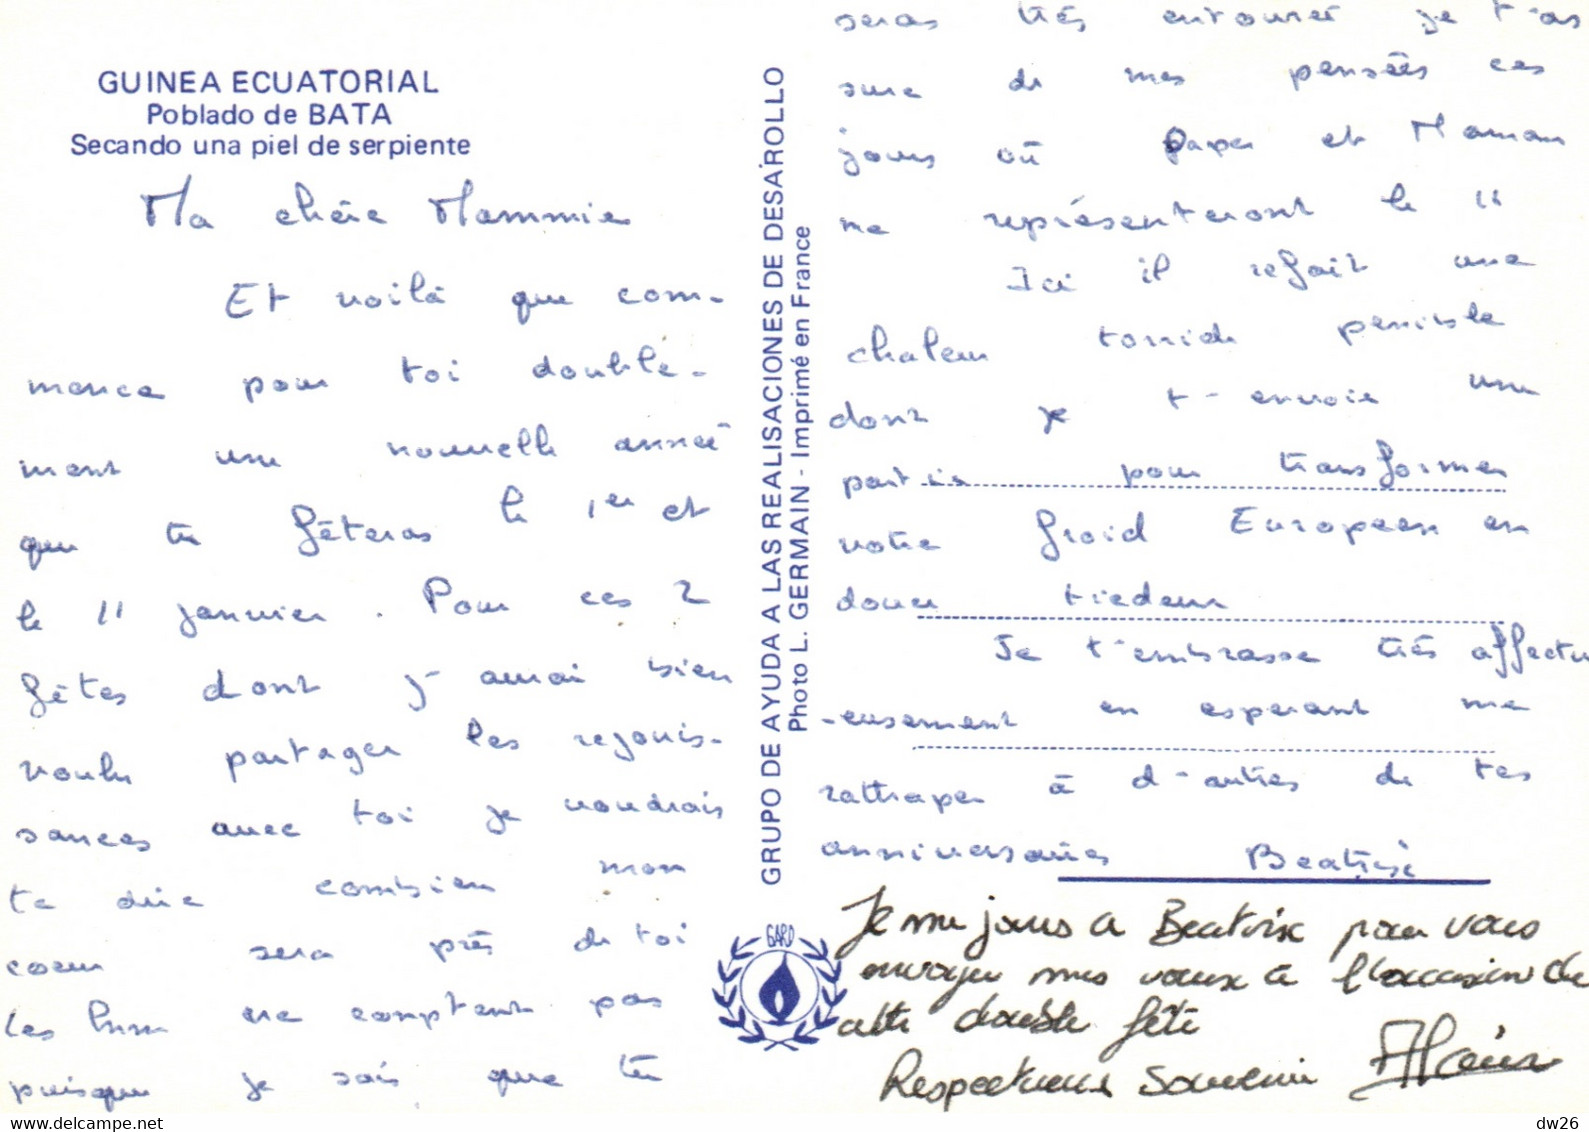 GUINEA ECUATORIAL
Poblado de BATA
Secando una piel de serpiente
Ma chère Mammie
Et voilà que com-
mence pour toi double-
ment une nouvelle année
que tu fêteras le 1er et
le 11 janvier. Pour ces 2
fêtes dont j'aurai bien
voulu partager les rejouis-
sances avec toi je voudrais
te dire combien mon
coeur sera près de toi
Les kmm ne comptent pas
puisque je sais que tu
GRUPO DE AYUDA A LAS REALISACIONES DE DESAROLLO
Photo L. GERMAIN - Imprimé en France
GARD
seras très entourée je t'as
sure de mes pensées ces
jours où Papa et Maman
me représenteront le 11
Ici il refait une
chaleur torride penible
dont je t'envoie une
partie pour transformer
votre froid Europeen en
douce tiedeur
Je t'embrasse très affectu
-eusement en esperant me
rattraper à d'autres de tes
anniversaires Beatrix
Je me joins a Beatrix pour vous
envoyer mes vœux à l'occasion de
cette double fête
Respectueux Souvenir Alain
delcampe.net
dw26